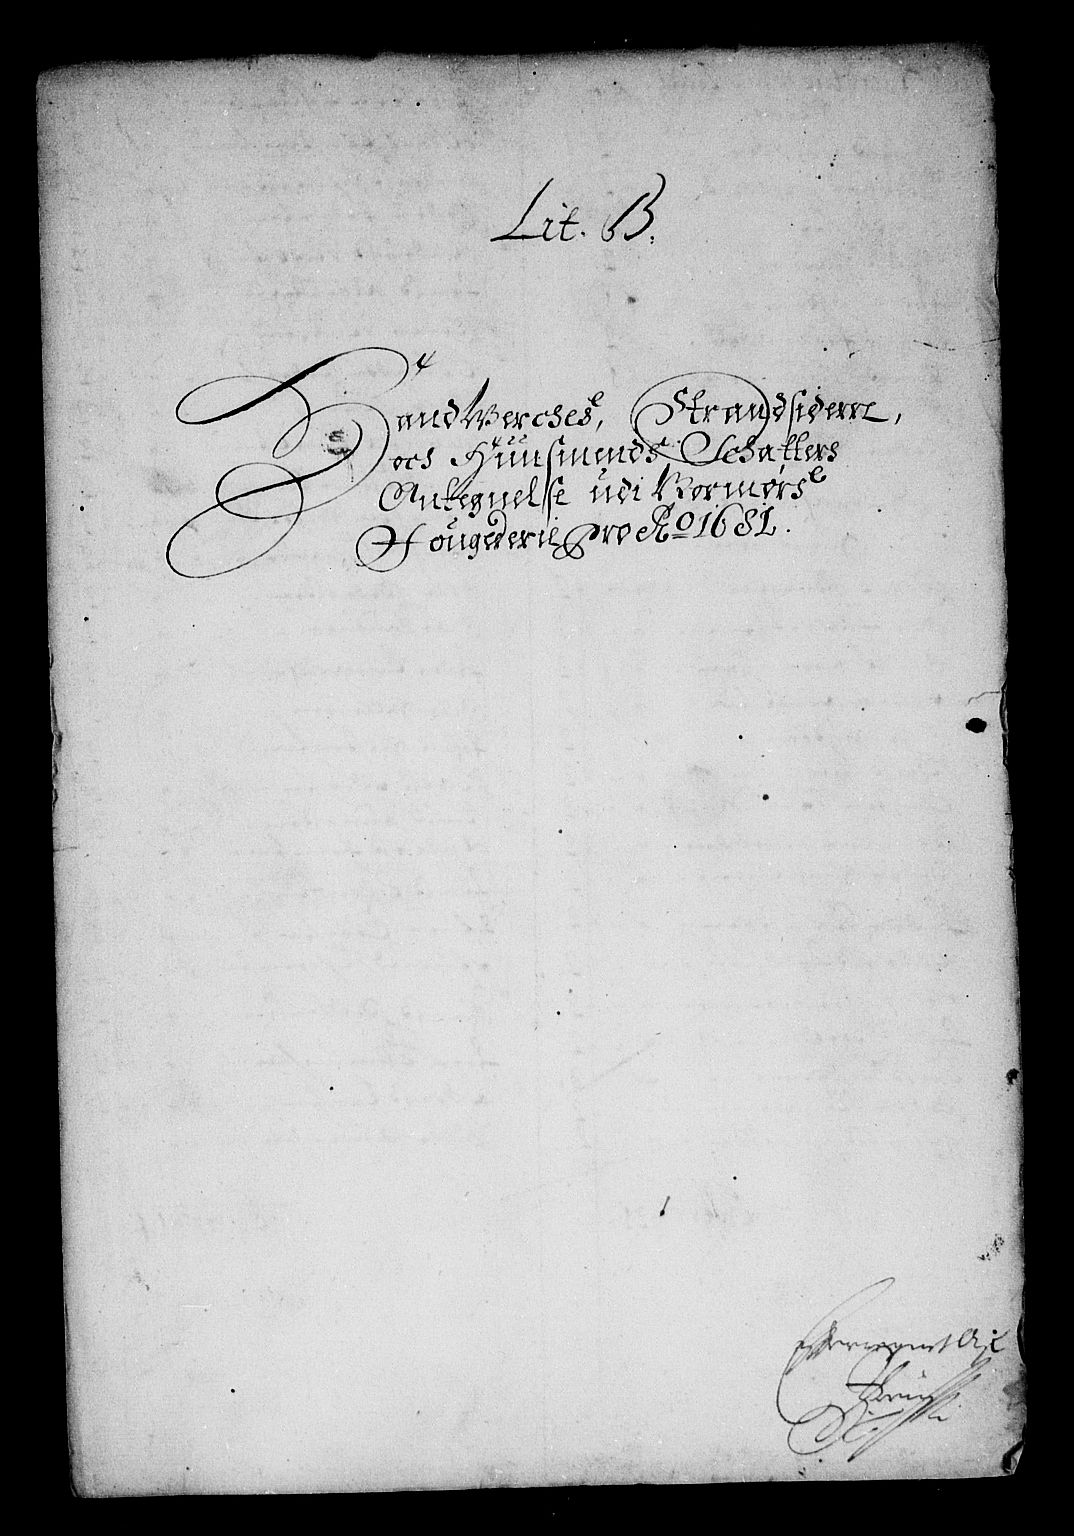 Lit. B.
HandVerches, Strandsidere,
och Huusmends Schatters
Antegnelse udi Normørs
Fougederie Pro Ao 1681.